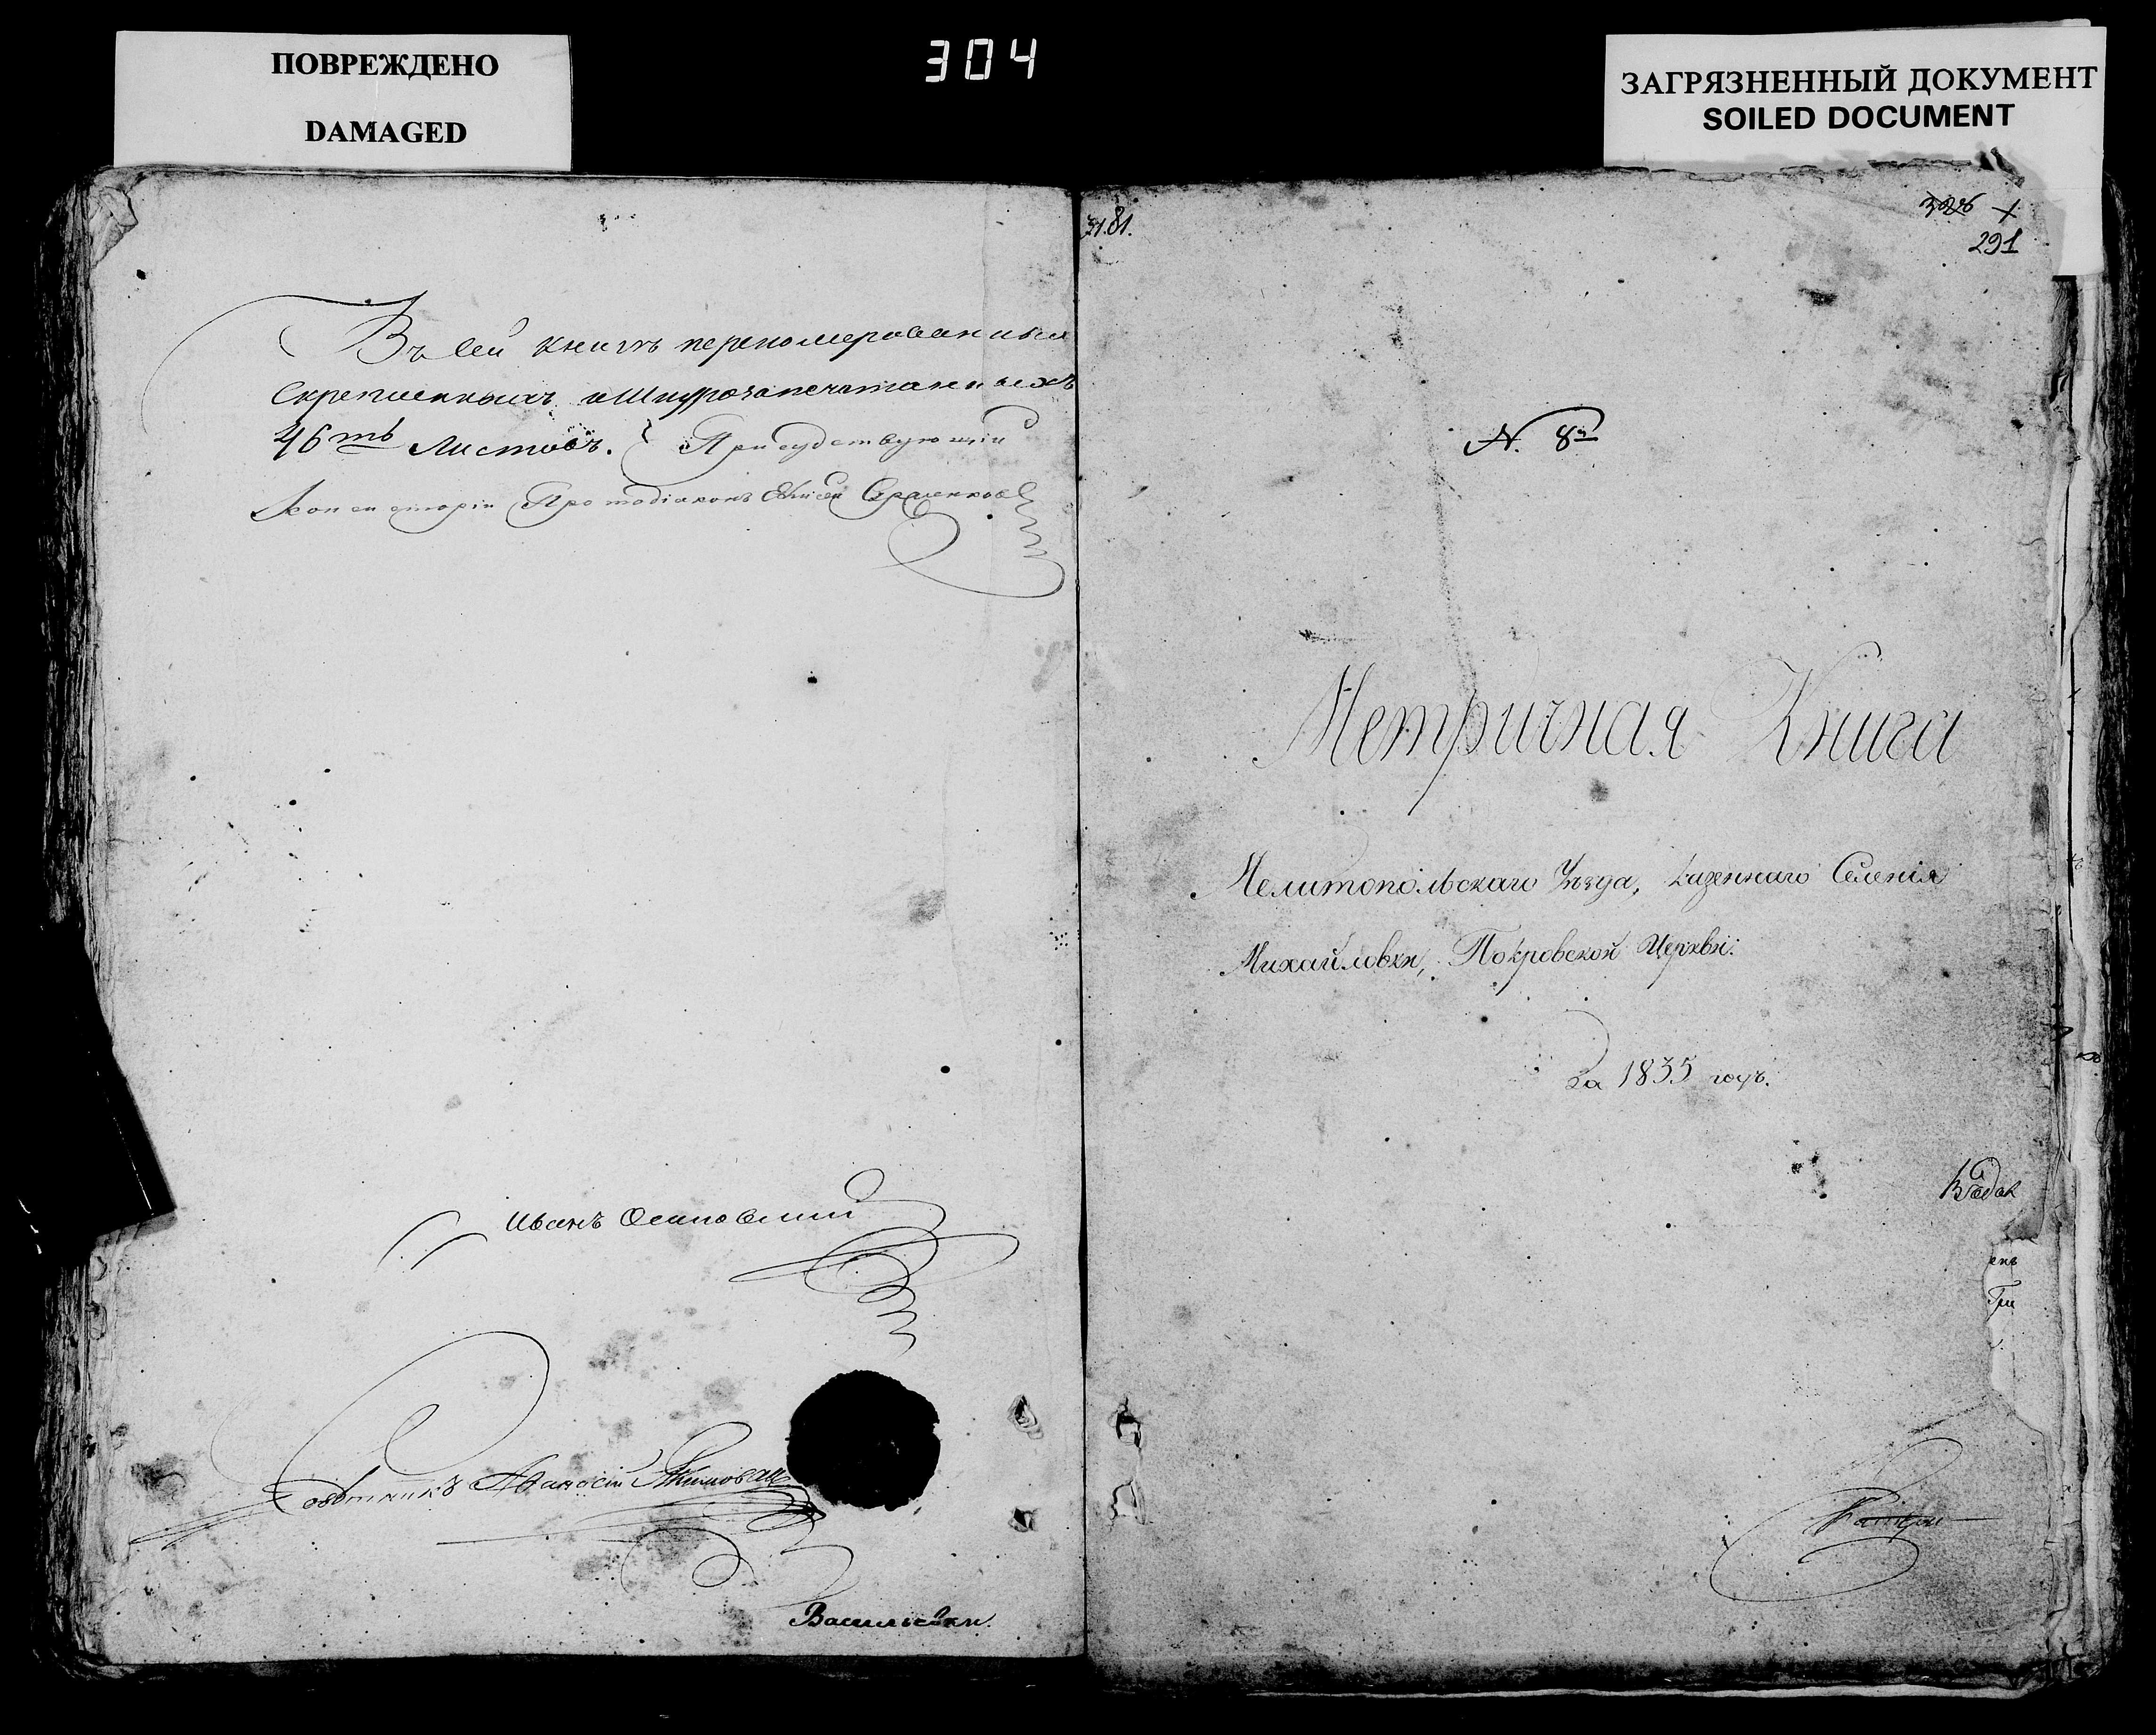 ПОВРЕЖДЕНО
DAMAGED
304
ЗАГРЯЗНЕННЫЙ ДОКУМЕНТ
SOILED DOCUMENT
Въ сей книгѣ перенумерованныхъ
скрепленныхъ и шнурозапечатанныхъ
46ть листовъ. Присудствующій
Консисторіи Протодіаконъ
Иванъ
Совѣтникъ Аѳанасій
Васильевки.
81.
291
N. 8й
Метричная Книга
Мелитопольскаго Уѣзда, казеннаго Селенія
Михайловки, Покровской Церкви:
За 1835 годъ.